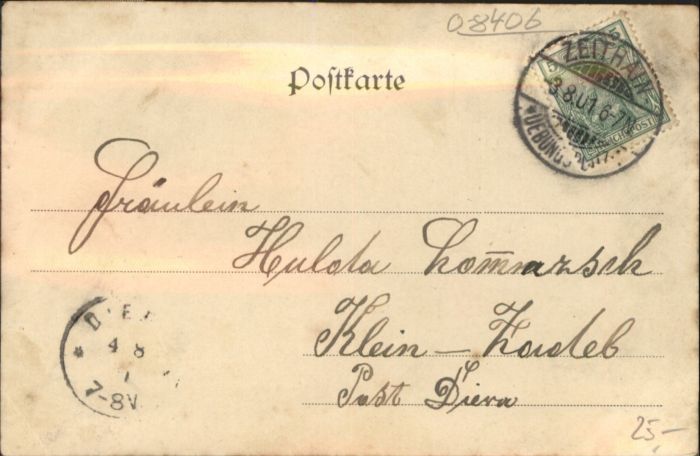 0-8406
Postkarte
ZEITHAIN
3.8.01.6-7N.
UEBUNGSPLATZ
REICHSPOST
Fräulein
Hulda Lom̅azsch
Klein-Zadel
Post Diera
DIE
4 8
1
7-8V
25,-